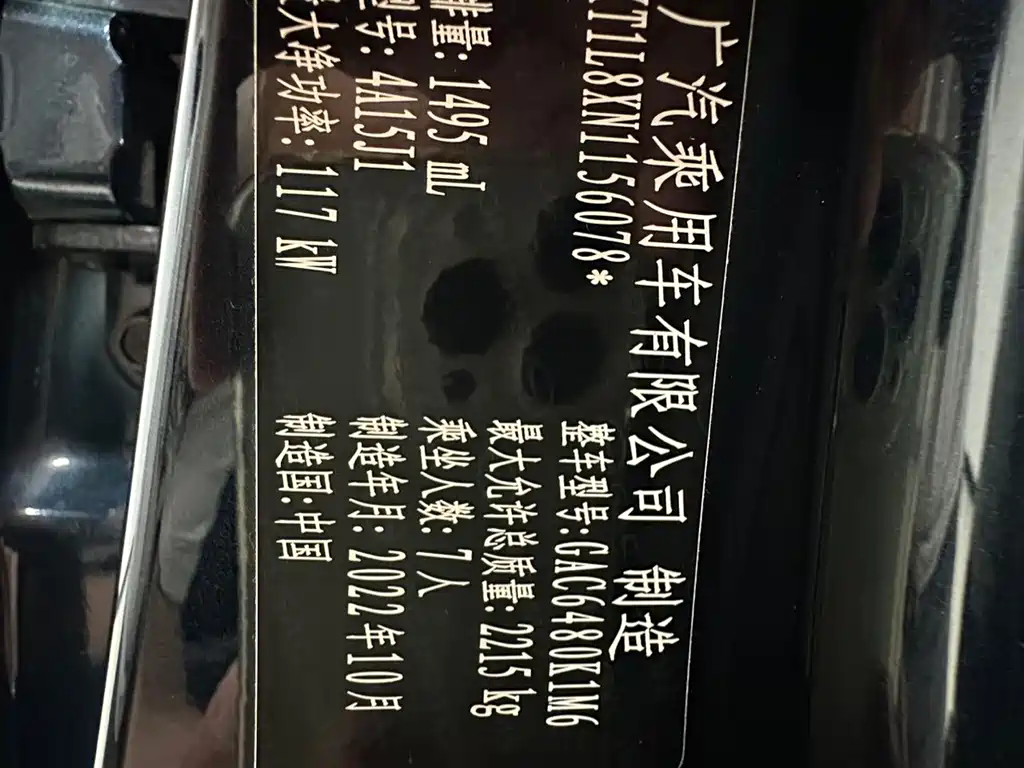 广汽乘用车有限公司 制造
XT1L8XN1156078*
整车型号:GAC6480K1M6
排量: 1495 mL
最大允许总质量: 2215 kg
型号: 4A15J1
乘坐人数: 7人
最大净功率: 117 kW
制造年月: 2022年10月
制造国: 中国